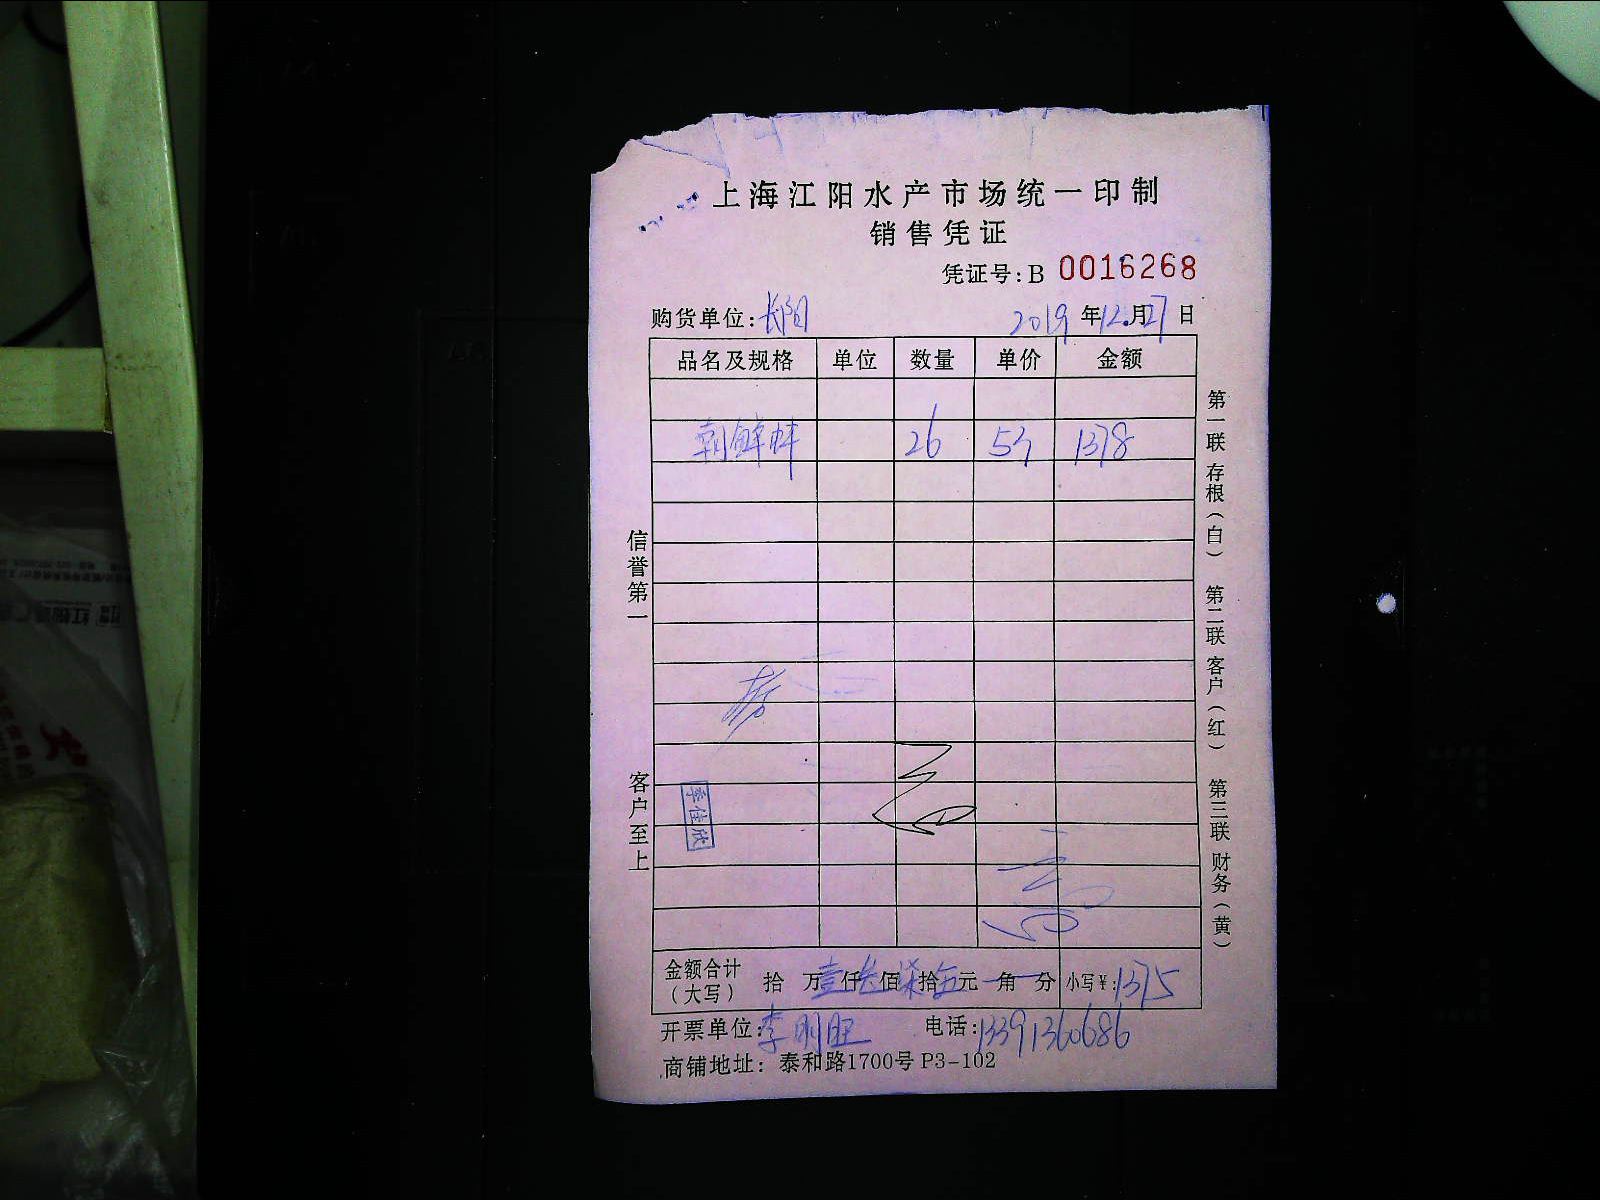 上海江阳水产市场统一印制
销售凭证
凭证号:B 0016268
购货单位:长阳 2019年12月27日
品名及规格 单位 数量 单价 金额
朝鲜蚌 26 53 1378
金额合计（大写） 拾 万壹仟叁佰柒拾伍元 角 分 小写¥:1375
开票单位:李明旺 电话:13391360686
商铺地址: 泰和路1700号 P3-102
信誉第一
客户至上
第一联 存根（白）
第二联 客户（红）
第三联 财务（黄）
李佳欣